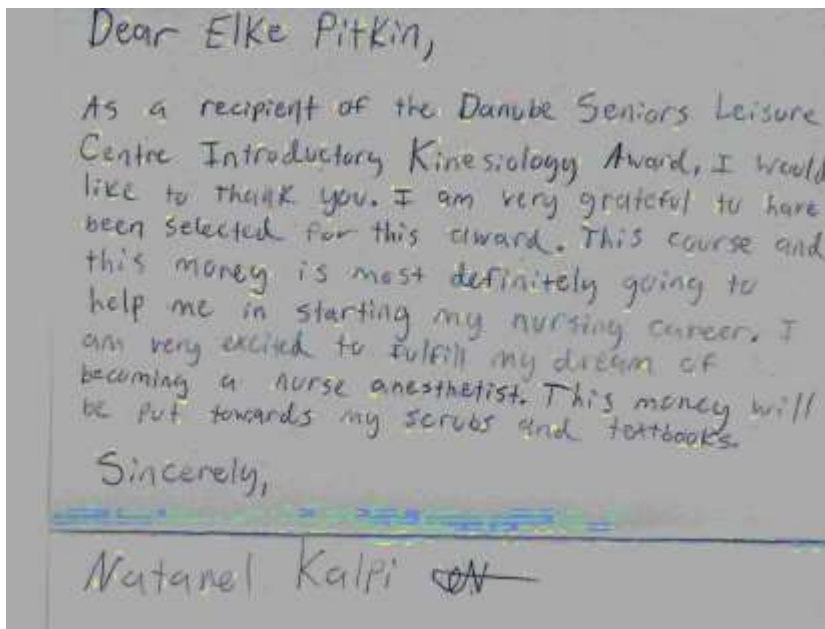 Dear Elke Pitkin,
As a recipient of the Danube Seniors Leisure
Centre Introductory Kinesiology Award, I would
like to thank you. I am very grateful to have
been selected for this award. This course and
this money is most definitely going to
help me in starting my nursing career. I
am very excited to fulfill my dream of
becoming a nurse anesthetist. This money will
be put towards my scrubs and textbooks.
Sincerely,
Natanel Kalpi